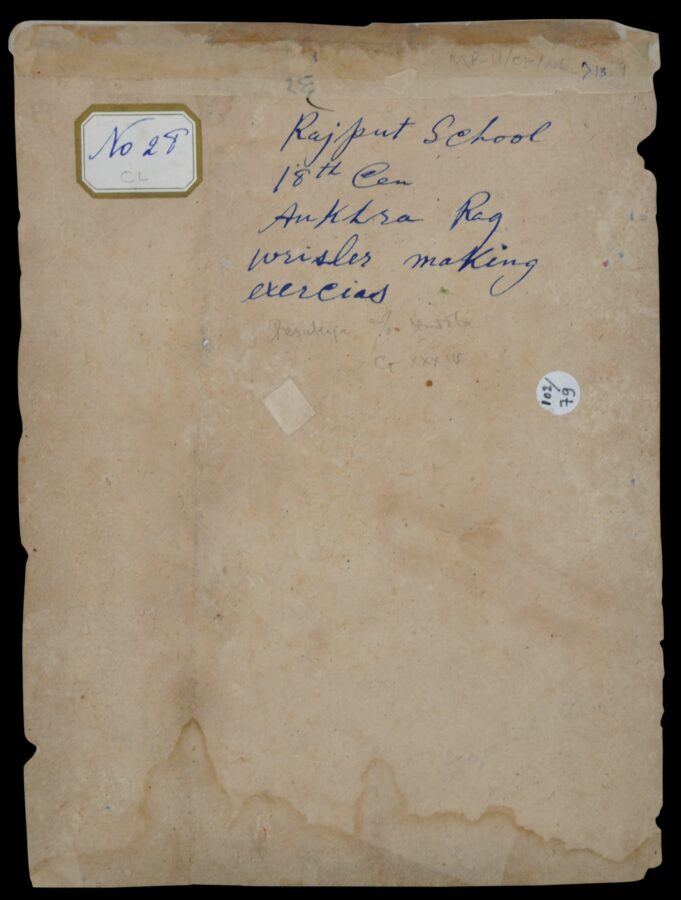 28
No 28
CL
Rajput School
18th Cen
Ankhra Rag
wrisler making
exercias
102/
79